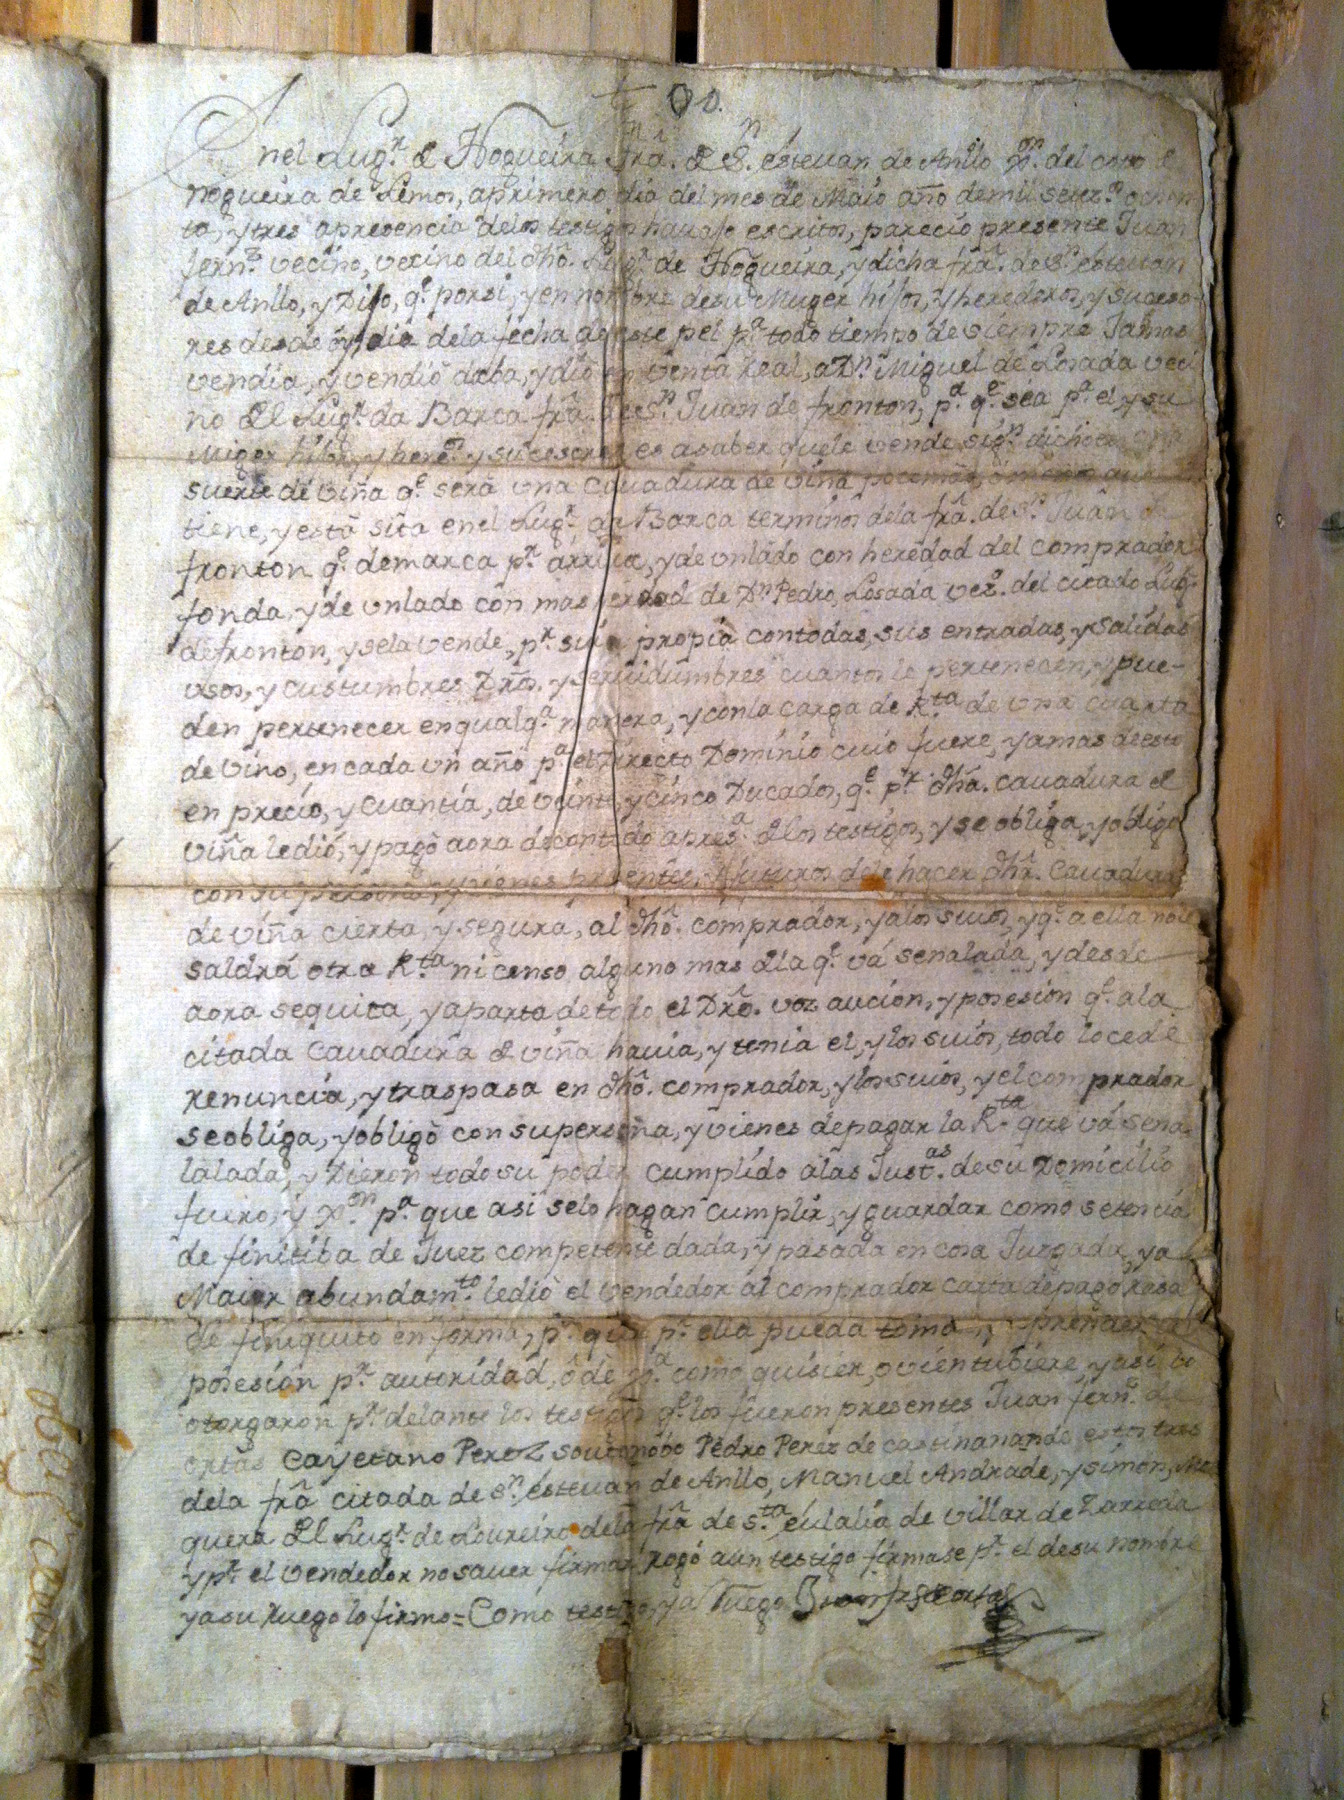 Enel Lugr. de Nogueira frâ. de Sn. estevan de Anllo Xon. del coto de
nogueira de Lemos, aprimero dia del mes de Maio año demil setezs. ochen
ta, y tres apresencia delos testigos havajo escritos, pareció presente Juan
fernz. vecino, vecino del dhô. Lugr. de Nogueira, y dicha frâ. de Sn. estevan
de Anllo, y Dijo, qe. porsi, y en nombre desu Muger hijos, y herederos, y suceso-
res desde oy, dia dela fecha deeste pel pa. todo tiempo de siempre Jamas
vendia, y vendiò daba, y dió en venta Real, a Dn. Miguel de Losada veci
no del Lugr. da Barca frâ. de Sn. Juan de fronton, pa. qe. sea pa. el, y su
Muger hijos, y heros. y sucesores es asaber quele vende sigun dicho es una
suerte de viña qe. será una Cavadura de viña pocomas, omenos que
tiene, y està sita enel Lugr. da Barca terminos dela frâ. de Sn. Juan de
fronton qe. demarca pr. arriva, y de unlado con heredad del comprador
fonda, y de unlado con mas heredad de Dn Pedro, Losada vezo. del citado Lugr.
defronton, y sela vende, pr. suia propia contodas, sus entradas, y salidas
usos, y custumbres Drôs. y servidumbres cuantos le pertenecen, y pue-
den pertenecer enqualqa. manera, y conla carga de Rta. de una cuarta
de vino, encada un año pa. el Directo Dominio cuio fuere, y amas deesto
en precio, y cuantia, de veinte, y cinco Ducados, qe. pr. dhâ. cavadura de
viña ledió, y pagò aora decontado apresa. delos testigos, y se obliga, y obligò
con su persona, y vienes presentes, y futuros dele hacer dhâ. Cavadura
de viña cierta, y segura, al dhô. comprador, y alos suios, y qe. a ella nole
saldrá otra Rta. ni censo alguno mas dela qe. vá senalada, y desde
aora sequita, y aparta detodo el Drô. voz aucion, y posesión qe. ala
citada Cavadura de viña havia, y tenia el, y los suios, todo lo cede
renuncia, y traspasa en dhô. comprador, y los suios, y el comprador
seobliga, y obligò con supersona, y vienes depagar la Rta. que vá sena-
lalada, y Dieron todo su poder cumplido alas Justas. de su Domicilio
fuero, y Xon. pa. que asi selo hagan cumplir, y guardar como setencia
de finitiba de Juez competente dada, y pasada en cosa Juzgada, y a
Maior abundamto. ledió el vendedor al comprador carta depago rasa
de finiquito en forma, pa. que pr. ella pueda tomar, y aprender la
posesión pr. autoridad, ô de Xa. como quisier, o vientubiere, y asi lo
otorgaron pr. delante los testigos qe. los fueron presentes Juan fernz. de
ortas Cayetano Perez soutonobo Pedro Perez de castinanande estos tres
dela frâ citada de Sn. estevan de Anllo, Manuel Andrade, y simon, No
guera del Lugr. de Loureiro dela frâ de sta. eulalia de villar de Zarreda
y pr. el vendedor no saver firmar rogó aun testigo firmase pr. el desu nombre
yasu Ruego lo firmo = Como testigo, y a Ruego Juan frz de ortas